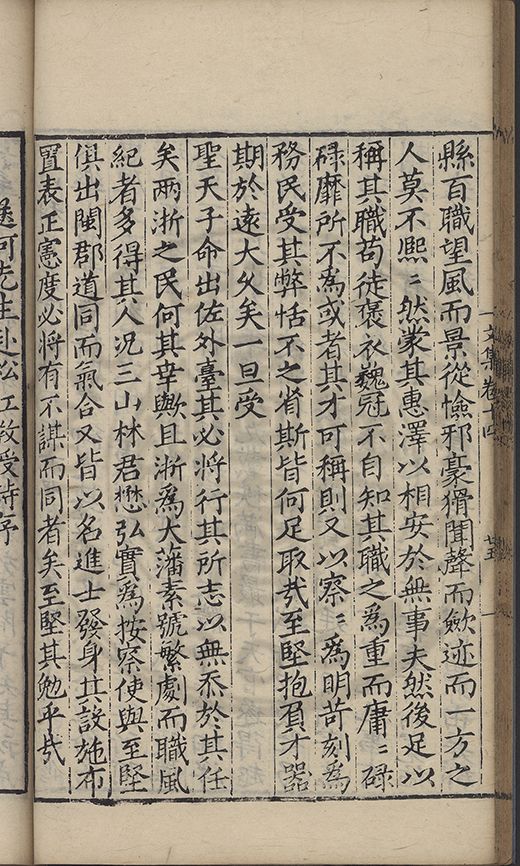 文集卷十四
廿五
縣百職望風而景從憸邪豪猾聞聲而歛迹而一方之
人莫不熈〻然蒙其惠澤以相安於無事夫然後足以
稱其職苟徒褒衣巍冠不自知其職之為重而庸〻碌
碌靡所不為或者其才可稱則又以察〻為明苛刻為
務民受其弊恬不之省斯皆何足取㢤至堅抱負才器
期於遠大久矣一旦受
聖天子命出佐外臺其必將行其所志以無忝於其任
矣两浙之民何其幸歟且浙為大藩素號繁劇而職風
紀者多得其人况三山林君懋弘實為按察使與至堅
俱出閩郡道同而氣合又皆以名進士發身其設施布
置表正憲度必將有不謀而同者矣至堅其勉乎㢤
先生赴松江教授詩序